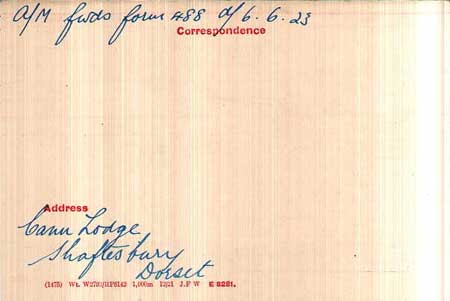 A/M fwds form 488 d/6.6.23
Correspondence
Address
Cann Lodge
Shaftesbury
Dorset
(1475) Wt. W2780/HP5143 1,000m 12/21 J.F W E 8281.